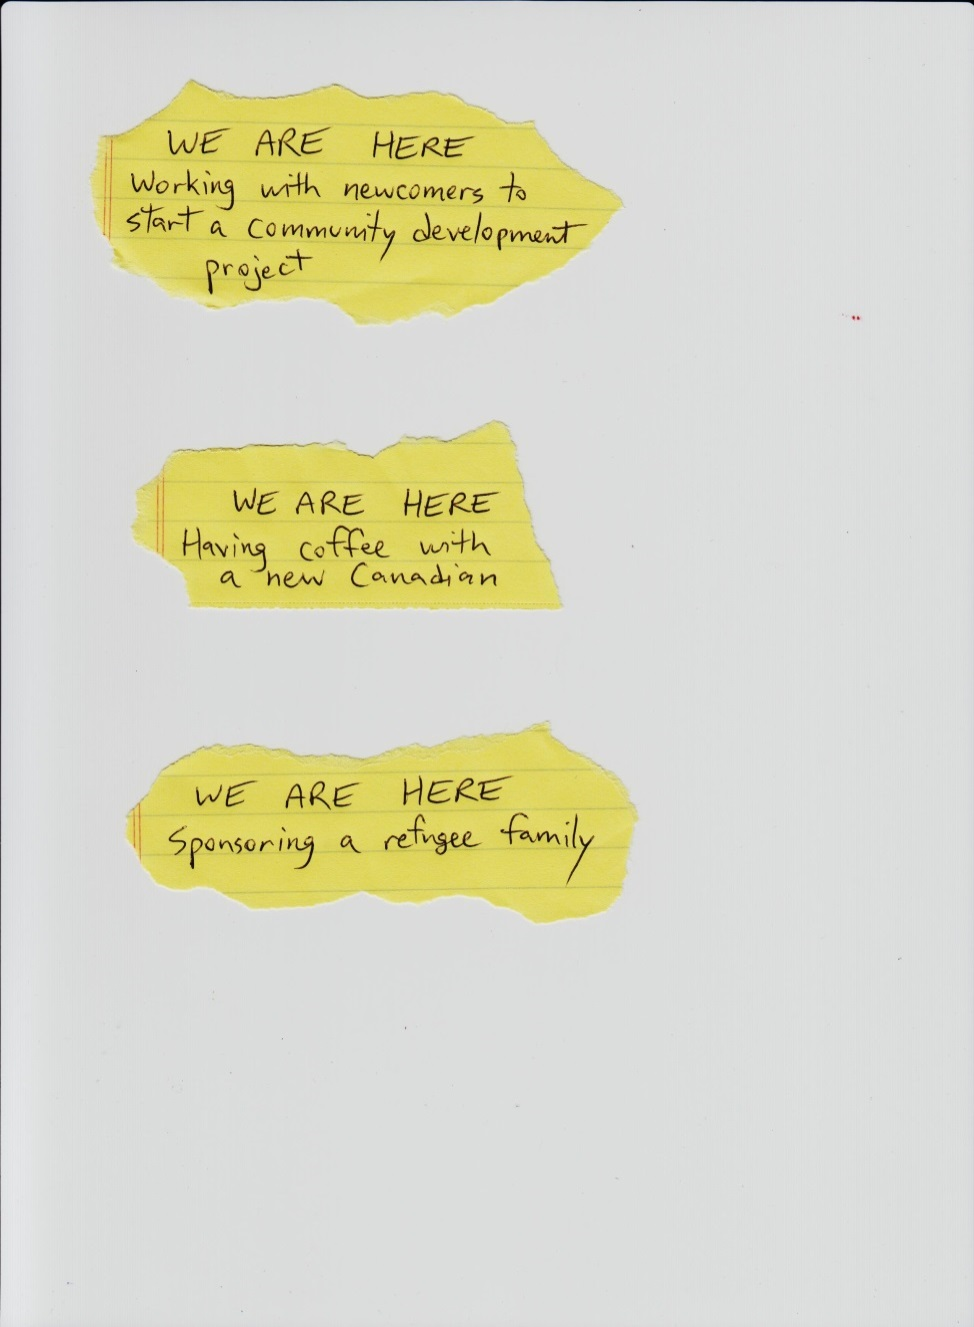 WE ARE HERE
Working with newcomers to
start a community development
project
WE ARE HERE
Having coffee with
a new Canadian
WE ARE HERE
Sponsoring a refugee family